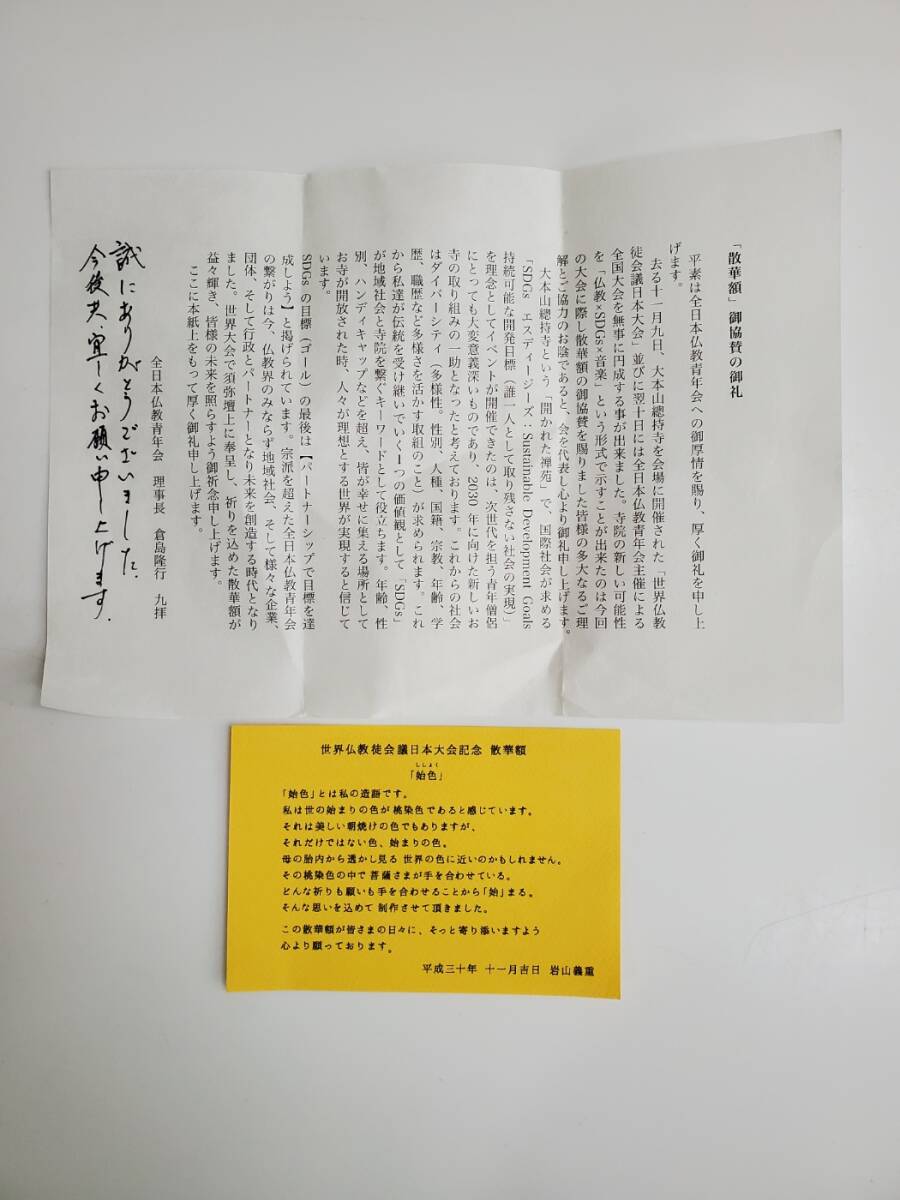 「散華額」御協賛の御礼
平素は全日本仏教青年会への御厚情を賜り、厚く御礼を申し上
げます。
去る十一月九日、大本山總持寺を会場に開催された「世界仏教
徒会議日本大会」並びに翌十日には全日本仏教青年会主催による
全国大会を無事に円成する事が出来ました。寺院の新しい可能性
を「仏教×SDGs×音楽」という形式で示すことが出来たのは今回
の大会に際し散華額の御協賛を賜りました皆様の多大なるご理
解とご協力のお陰であると、会を代表し心より御礼申し上げます。
大本山總持寺という「開かれた禅苑」で、国際社会が求める
「SDGs エスディージーズ：Sustainable Development Goals
持続可能な開発目標（誰一人として取り残さない社会の実現）」
を理念としてイベントが開催できたのは、次世代を担う青年僧侶
にとっても大変意義深いものであり、2030 年に向けた新しいお
寺の取り組みの一助となったと考えております。これからの社会
はダイバーシティ（多様性。性別、人種、国籍、宗教、年齢、学
歴、職歴など多様さを活かす取組のこと）が求められます。これ
から私達が伝統を受け継いでいく一つの価値観として「SDGs」
が地域社会と寺院を繋ぐキーワードとして役立ちます。年齢、性
別、ハンディキャップなどを超え、皆が幸せに集える場所として
お寺が開放された時、人々が理想とする世界が実現すると信じて
います。
SDGs の目標（ゴール）の最後は【パートナーシップで目標を達
成しよう】と掲げられています。宗派を超えた全日本仏教青年会
の繋がりは今、仏教界のみならず地域社会、そして様々な企業、
団体、そして行政とパートナーとなり未来を創造する時代となり
ました。世界大会で須弥壇上に奉呈し、祈りを込めた散華額が
益々輝き、皆様の未来を照らすよう御祈念申し上げます。
ここに本紙上をもって厚く御礼申し上げます。
全日本仏教青年会 理事長 倉島隆行 九拝
誠にありがとうございました.
今後共、宜しくお願い申し上げます.
世界仏教徒会議日本大会記念 散華額
ししょく
「始色」
「始色」とは私の造語です。
私は世の始まりの色が桃染色であると感じています。
それは美しい朝焼けの色でもありますが、
それだけではない色、始まりの色。
母の胎内から透かし見る 世界の色に近いのかもしれません。
その桃染色の中で菩薩さまが手を合わせている。
どんな祈りも願いも手を合わせることから「始」まる。
そんな思いを込めて 制作させて頂きました。
この散華額が皆さまの日々に、そっと寄り添いますよう
心より願っております。
平成三十年 十一月吉日 岩山義重